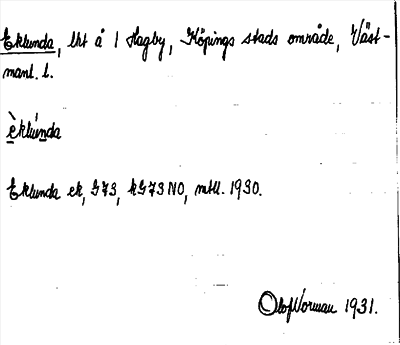 Eklunda, lht å 1 Hagby, Köpings stads område, Väst-
manl. l.
èklún̲da
Eklunda ek, G73, kG73 NO, mtll. 1930.
Olof Norman 1931.